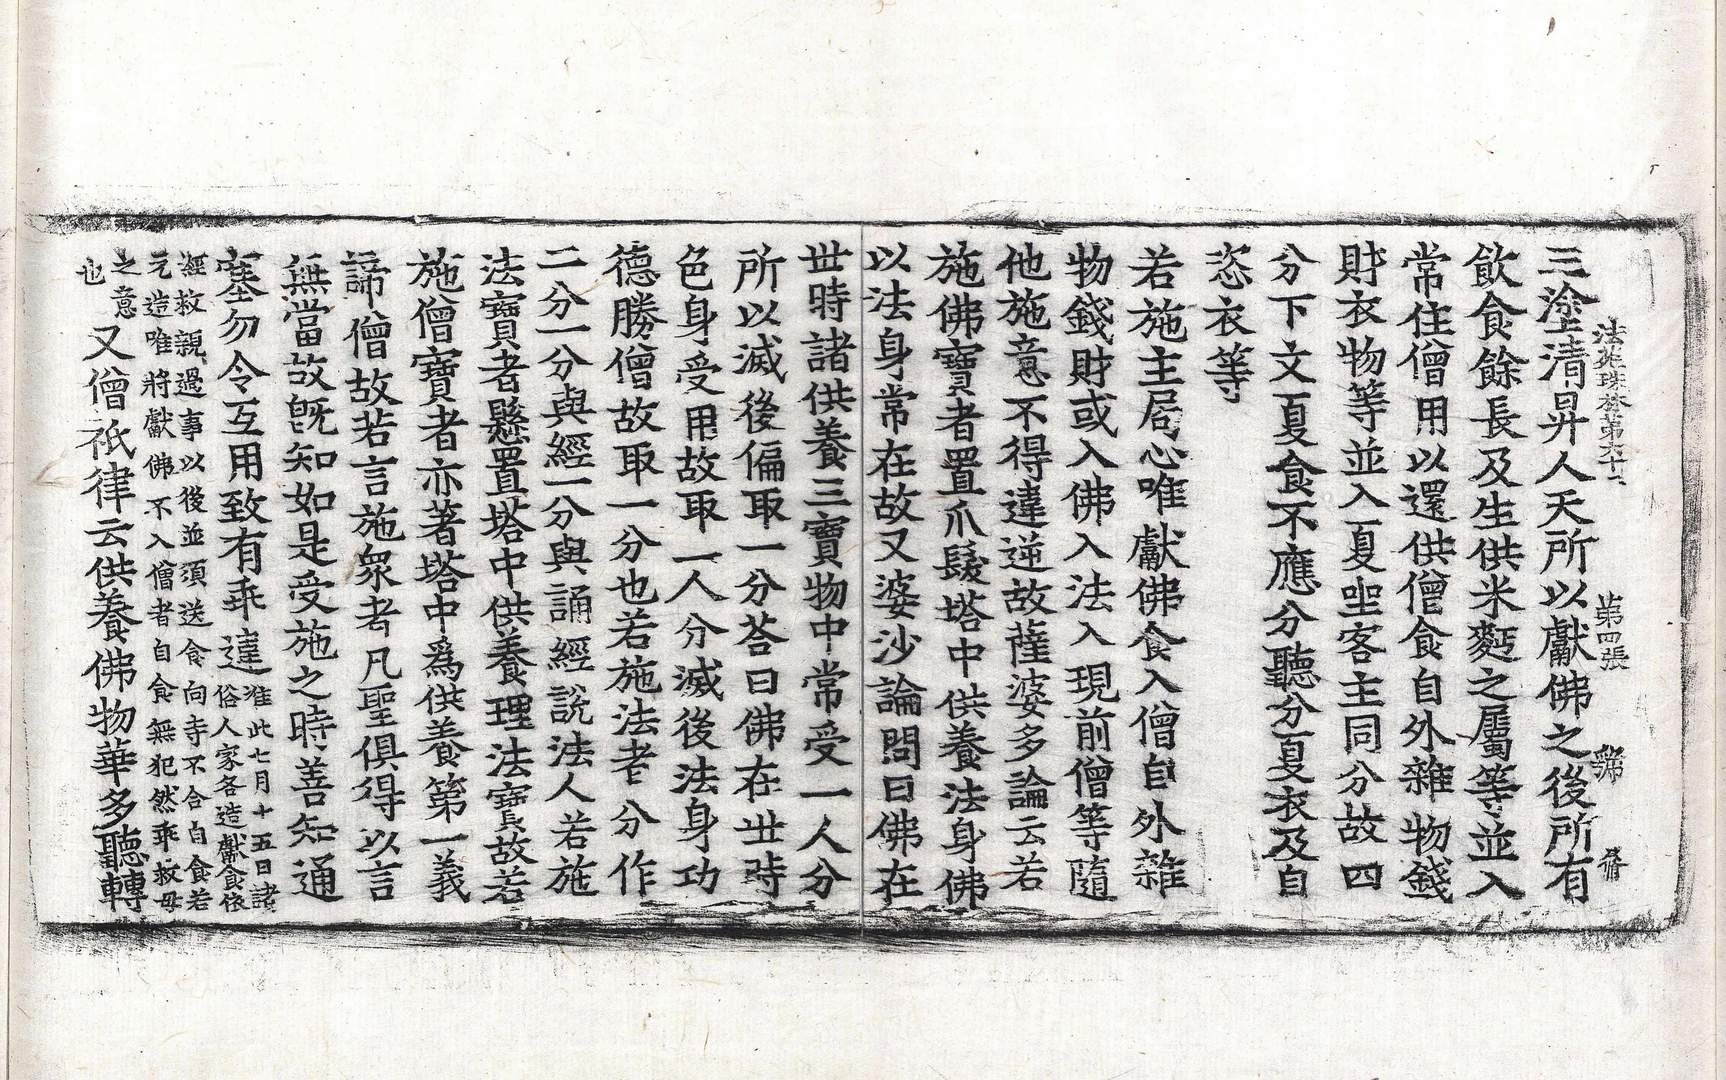 法苑珠林第六十二　第四張　弊
三塗清昇人天所以獻佛之後所有
飲食餘長及生供米麪之屬等並入
常住僧用以還供僧食自外雜物錢
財衣物等並入夏坐客主同分故四
分下文夏食不應分聽分夏衣及自
恣衣等
若施主局心唯獻佛食入僧自外雜
物錢財或入佛入法入現前僧等隨
他施意不得違逆故薩婆多論云若
施佛寶者置爪髮塔中供養法身佛
以法身常在故又婆沙論問曰佛在
世時諸供養三寶物中常受一人分
所以滅後偏取一分荅曰佛在世時
色身受用故取一人分滅後法身功
德勝僧故取一分也若施法者分作
二分一分與經一分與誦經說法人若施
法寶者懸置塔中供養理法寶故若
施僧寶者亦著塔中爲供養第一義
諦僧故若言施衆者凡聖俱得以言
無當故旣知如是受施之時善知通
塞勿令互用致有乖違准此七月十五日諸
俗人家各造獻食依
經救親過事以後並須送食向寺不合自食若
元造唯將獻佛不入僧者自食無犯然乖救母
之意
也又僧祇律云供養佛物華多聽轉